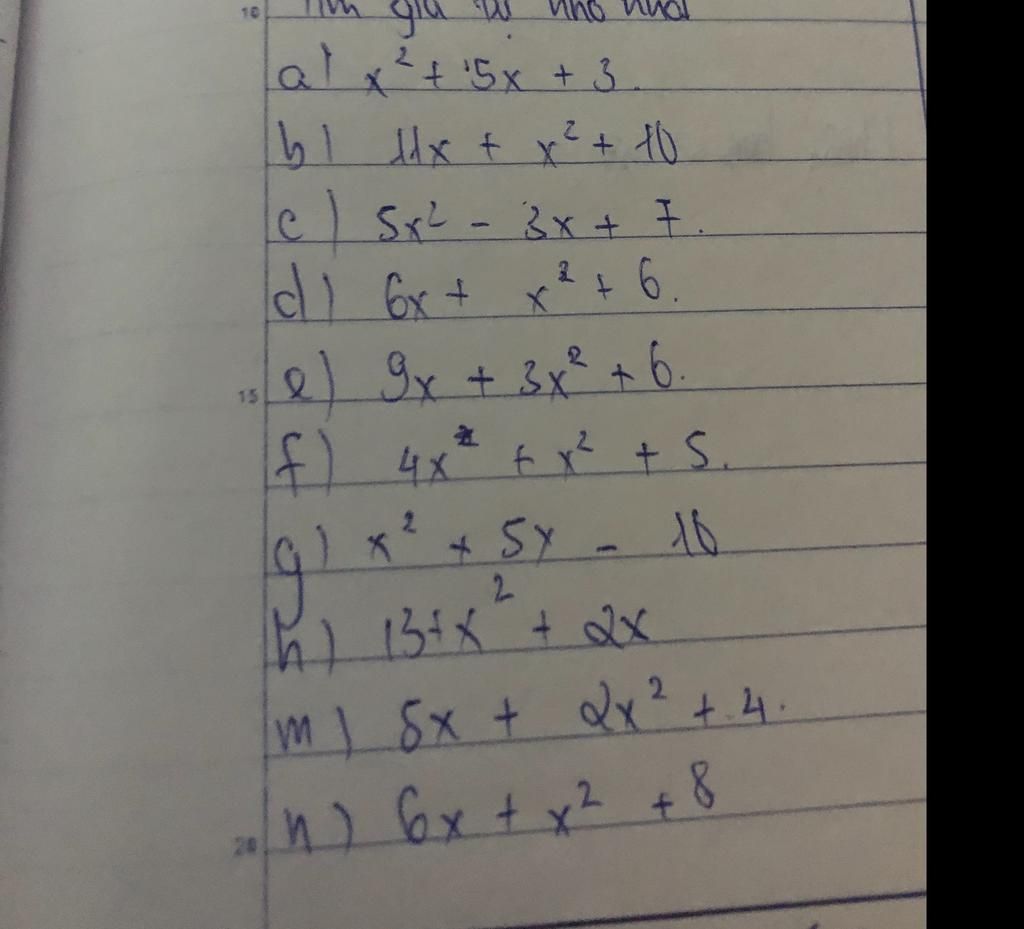 10 Tìm giá trị nhỏ nhất
a) x² + 5x + 3.
b) 11x + x² + 10
c) 5x² - 3x + 7.
d) 6x + x² + 6.
15 e) 9x + 3x² + 6.
f) 4x + x² + 5.
g) x² + 5x - 10
h) 13+x² + 2x
m) 5x + 2x² + 4.
20 n) 6x + x² + 8